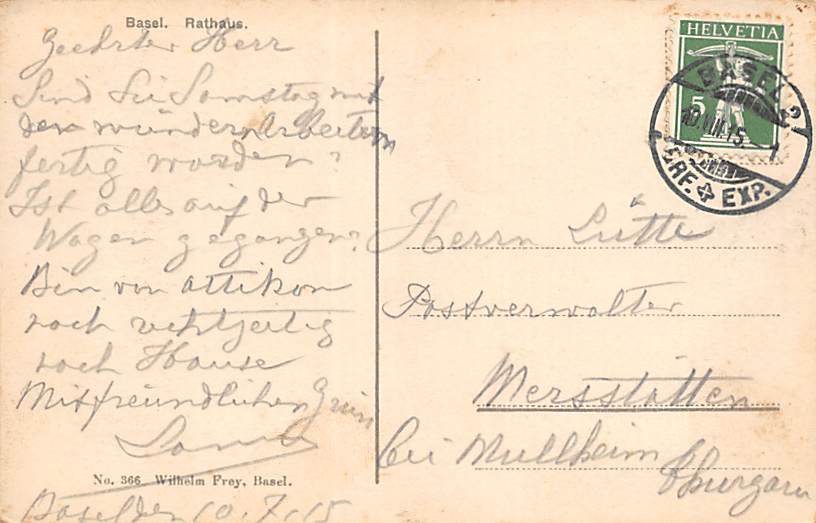 Basel. Rathaus.
Geehrter Herr
Sind Sie Samstag mit
den wundern Arbeiten
fertig worden?
Ist alles auf der
Wagen gegangen?
Bin von Attikon
noch rechtzeitig
noch Hause
Mitfreundlichen Gruss
No. 366 Wilhelm Frey, Basel.
Basel den 10.7.15
HELVETIA
5
BASEL 2
BRF. EXP.
Herrn Lütte
Postverwalter
Mersstätten
bei Mullheim
Thurgau